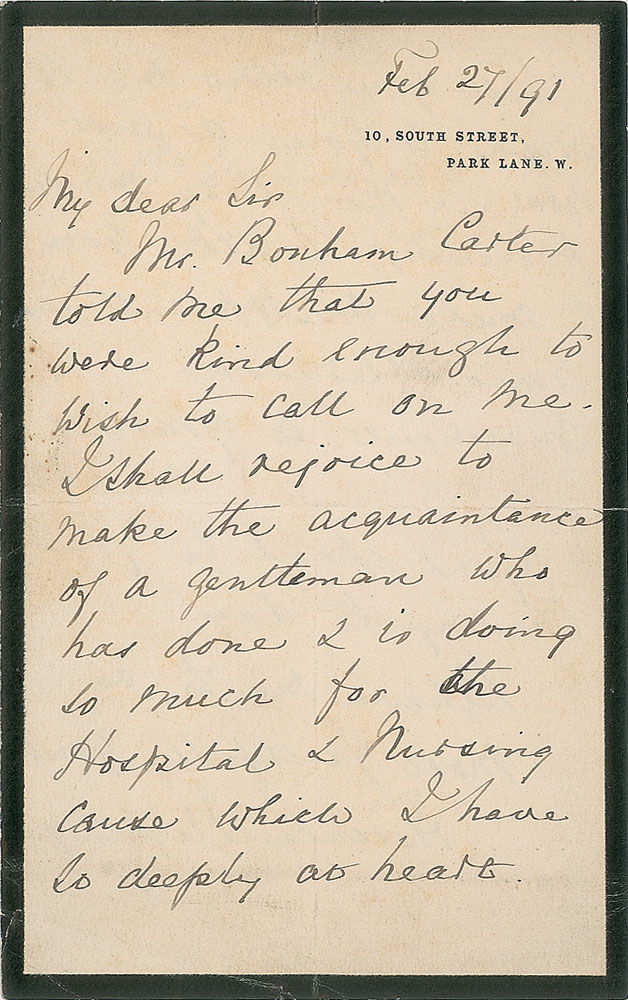 Feb 27/91
10, SOUTH STREET,
PARK LANE. W.
My dear Sir
Mr. Bonham Carter
told me that you
were kind enough to
wish to call on me.
I shall rejoice to
make the acquaintance
of a gentleman who
has done & is doing
so much for the
Hospital & Nursing
cause which I have
so deeply at heart.